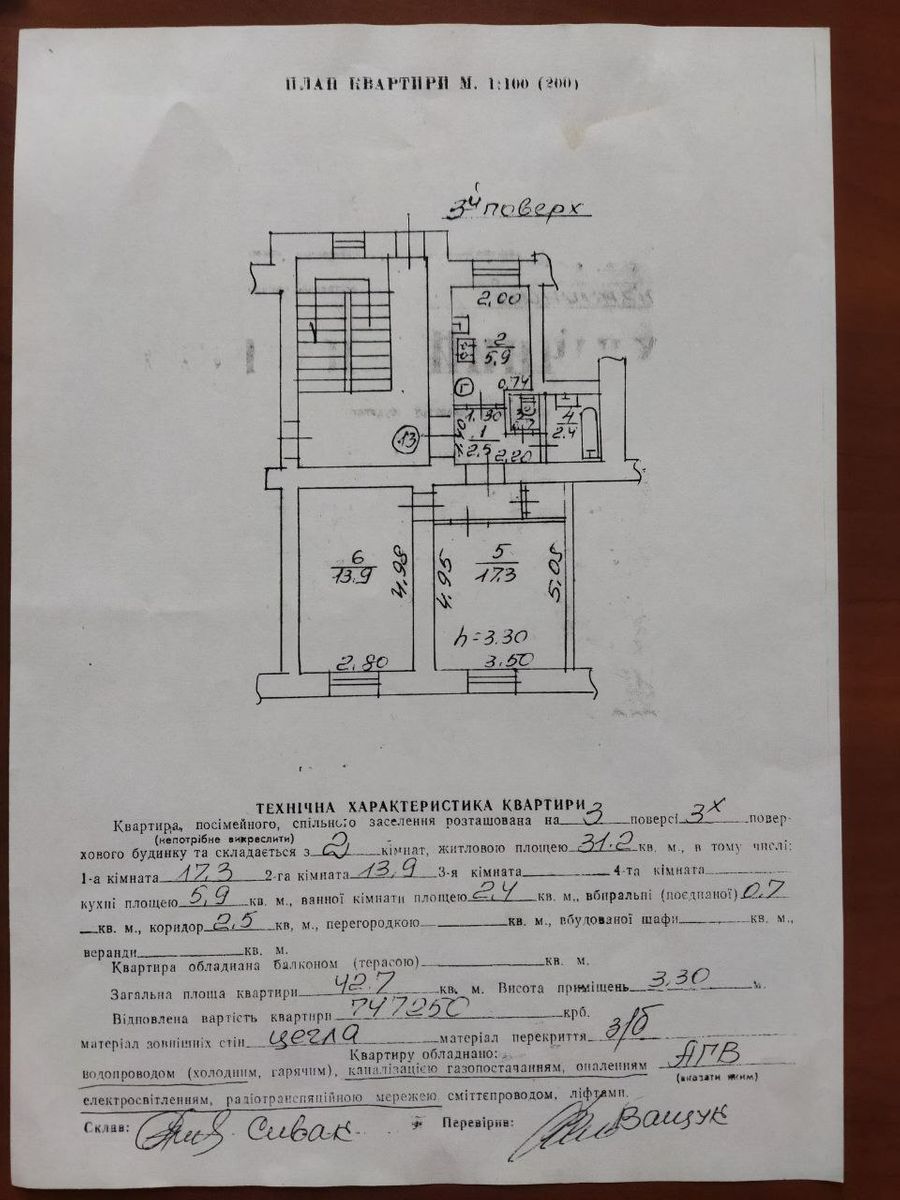 ПЛАН КВАРТИРИ М. 1:100 (200)
3й поверх
2.00
2
5.9
Г
0.74
1.30
3
0.7
4
2.4
1
2.5
2.20
13
6
13.9
4.98
4.95
5
17.3
5.05
h=3.30
2.80
3.50
ТЕХНІЧНА ХАРАКТЕРИСТИКА КВАРТИРИ
Квартира, посімейного, спільного заселення розташована на 3 поверсі 3х повер-
(непотрібне викреслити)
хового будинку та складається з 2 кімнат, житловою площею 31.2 кв. м., в тому числі:
1-а кімната 17,3 2-га кімната 13,9 3-я кімната 4-та кімната
кухні площею 5,9 кв. м., ванної кімнати площею 2,4 кв. м., вбиральні (поєднаної) 0,7
кв. м., коридор 2,5 кв, м., перегородкою кв. м., вбудованої шафи кв. м.,
веранди кв. м.
Квартира обладнана балконом (терасою) кв. м.
Загальна площа квартири 42.7 кв. м. Висота приміщень 3.30 м.
Відновлена вартість квартири 747250 крб.
матеріал зовнішніх стін цегла матеріал перекриття з/б
Квартиру обладнано:
водопроводом (холодним, гарячим), каналізацією газопостачанням, опаленням АГВ
(вказати яким)
електросвітленням, радіотрансляційною мережею сміттєпроводом, ліфтами.
Склав: Сивак Перевірив: Ващук